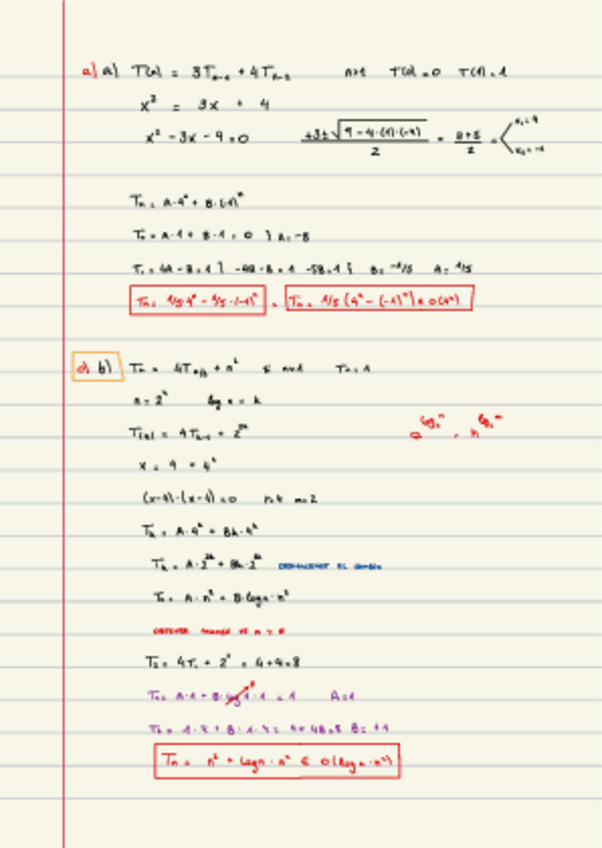 a) a) T(n) = 3Tn-1 + 4Tn-2 n>1 T(0)=0 T(1)=1
x² = 3x + 4
x² - 3x - 4 = 0 +3±√9-4·(1)·(-4) / 2 = 3±5 / 2 = x₁=4 x₂=-1
Tn = A·4ⁿ + B·(-1)ⁿ
T0 = A·1 + B·1 = 0 } A=-B
T1 = 4A - B = 1 } -4B - B = 1 -5B=1 } B=-1/5 A=1/5
Tn = 1/5·4ⁿ - 1/5·(-1)ⁿ = Tn = 1/5(4ⁿ - (-1)ⁿ) ∈ O(4ⁿ)
a) b) Tn = 4Tn/2 + n² n>1 T1=1
n = 2ᵏ log n = k
T(k) = 4Tk-1 + 2²ᵏ
x = 4 = 4ᵏ
(x-4)·(x-4)=0 r=4 m=2
Tk = A·4ᵏ + Bk·4ᵏ
Tk = A·2²ᵏ + Bk·2²ᵏ el cambio
Tn = A·n² + B·logn·n²
T2 = 4T1 + 2² = 4+4=8
T1 = A·1 + B·log1·1 = 1 A=1
T2 = 1·4 + B·1·4 = 4+4B=8 B=+1
Tn = n² + logn·n² ∈ O(logn·n²)